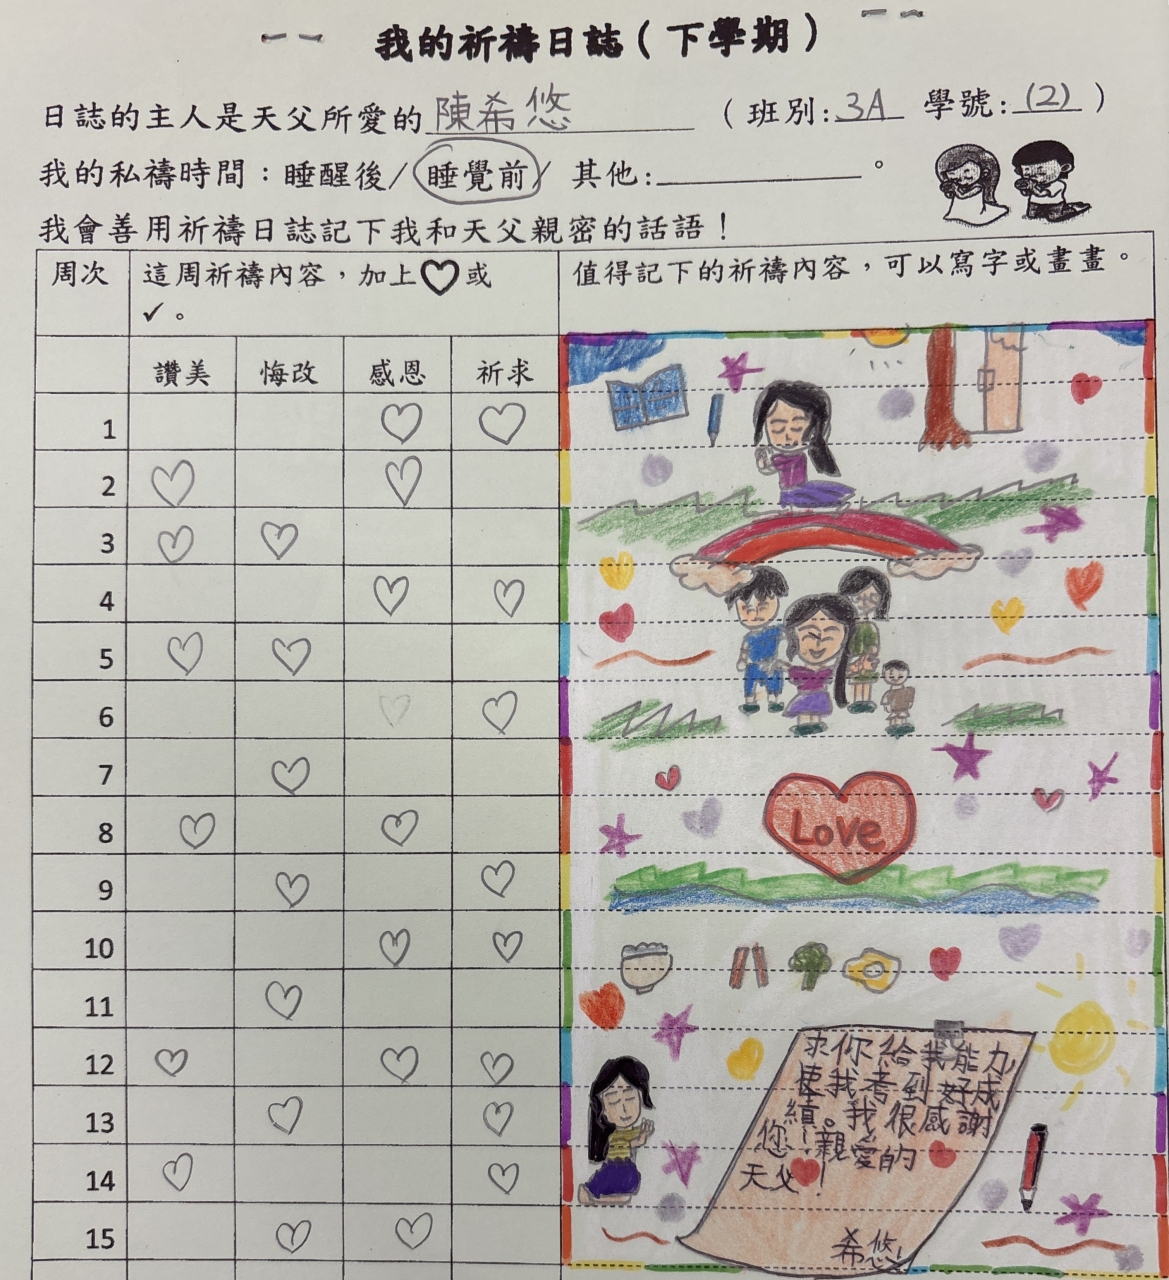 我的祈禱日誌（下學期）
日誌的主人是天父所愛的陳希悠（班別:3A 學號:(2)）
我的私禱時間：睡醒後/睡覺前/ 其他:。
我會善用祈禱日誌記下我和天父親密的話語！
周次 這周祈禱內容，加上♡或 值得記下的祈禱內容，可以寫字或畫畫。
✓。
讚美 悔改 感恩 祈求
1 ♡ ♡
2 ♡ ♡
3 ♡ ♡
4 ♡ ♡
5 ♡ ♡
6 ♡ ♡
7 ♡
8 ♡ ♡
9 ♡ ♡
10 ♡ ♡
11 ♡
12 ♡ ♡ ♡
13 ♡ ♡
14 ♡ ♡
15 ♡ ♡
Love
求你給我能力
我考到好成
績。我很感謝
您！親愛的
天父！
希悠!